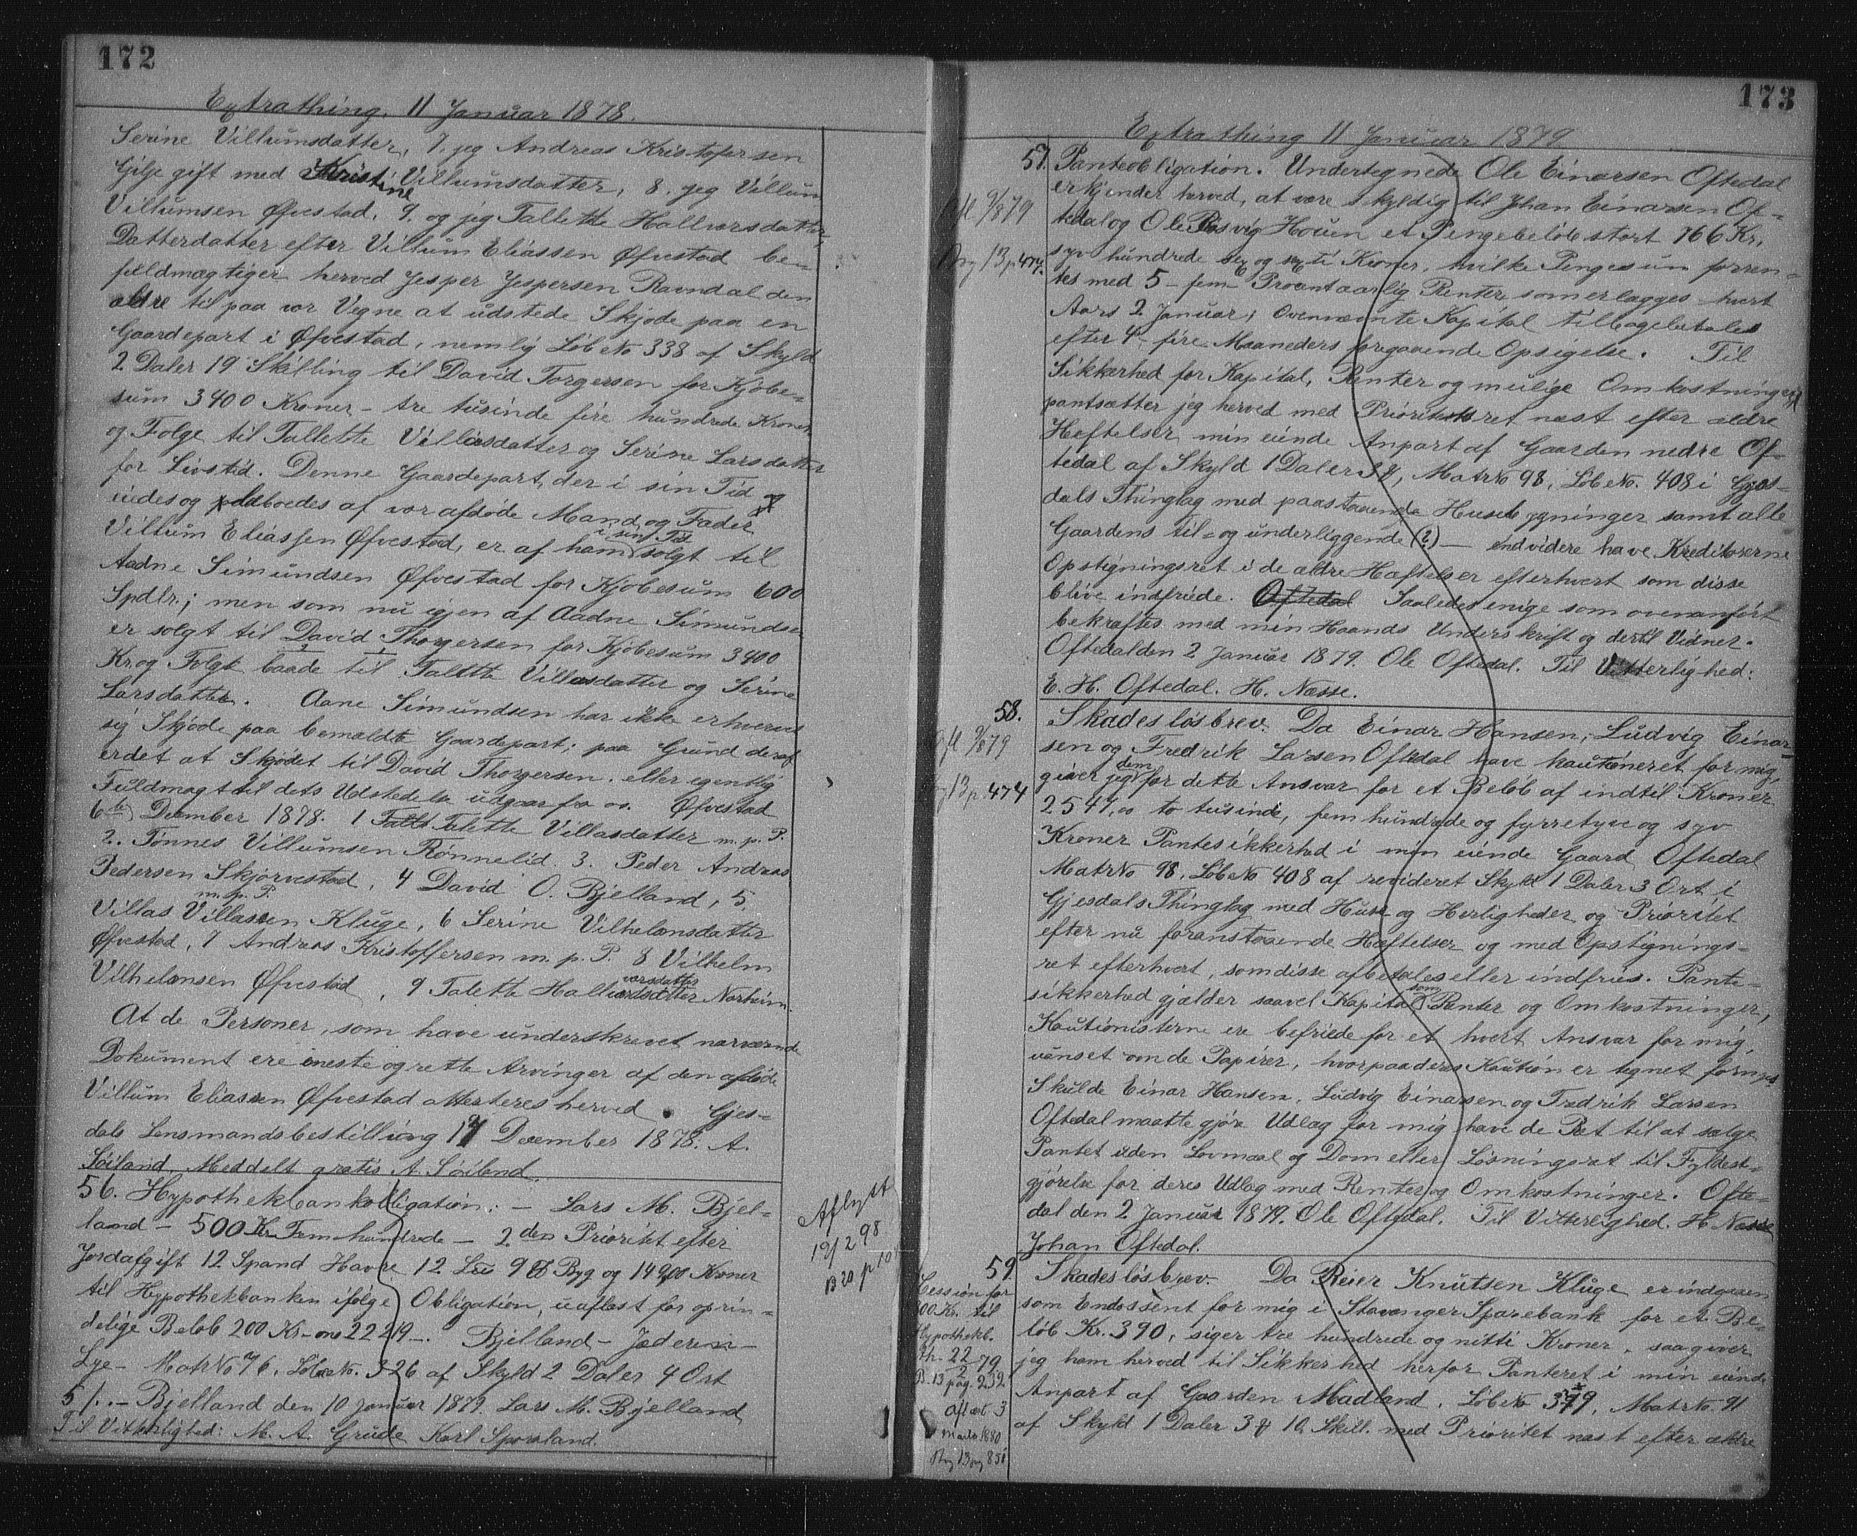 172
Extrathing 11 Januar 1878.
Serine Villumsdatter, 7. jeg Andreas Kristofersen
Gilje gift med Kristine Villumsdatter, 8. jeg Villum
Villumsen Øfvestad, 9. og jeg Tallette Hallvarsdatter,
Datterdatter efter Villum Eliassen Øfvestad be-
fuldmægtiger herved Jesper Jespersen Ravndal den
ældre til paa vor Vegne at udstede Skjøde paa en
Gaardepart i Øfvestad, nemlig Løbe No 338 af Skyld
2 Daler 19 Skilling til David Torgersen for Kjøbe-
sum 3400 Kroner - tre tusinde fire hundrede Kroner
og Følge til Tallette Villasdatter og Serine Larsdatter
for Livstid. Denne Gaardepart, der i sin Tid
eiedes og paaboedes af vor afdøde Mand og Fader
Villum Eliassen Øfvestad, er af ham i sin Tid solgt til
Aadne Simundsen Øfvestad for Kjøbesum 600
Spdlr.; men som nu igjen af Aadne Simundsen
er solgt til David Thorgersen for Kjøbesum 3400
Kr. og Følge baade til Talette Villasdatter og Serine
Larsdatter. Aane Simundsen har ikke erhvervet
sig Skjøde paa bemældte Gaardepart; paa Grund deraf
er det at Skjødet til David Thorgersen, eller egentlig
Fuldmagt til dets Udstedelse udgaar fra os. Øfvestad
6te December 1878. 1 Talette Villasdatter m. p. P.
2. Tønnes Villumsen Rønnelid. 3. Peder Andreas
Pedersen Skjørvestad, 4 David O. Bjelland, 5.
Villas Villassen Kluge, m. p. P. 6 Serine Vilhelmsdatter
Øfvestad, 7 Andreas Kristoffersen m. p. P. 8 Vilhelm
Vilhelmsen Øfvestad, 9 Talette Hallvarsdatter Norheim.
At de Personer, som have underskrevet nærværende
Dokument ere eneste og rette Arvinger af den afdøde
Villum Eliassen Øfvestad attesteres herved. Gjes-
dals Lensmandsbestilling 17 December 1878. A.
Søiland. Meddelt gratis A. Søiland.
56. Hypothekbankobligation: - Lars M. Bjel-
land - 500 Kr. Fem hundrede - 2den Prioritet efter
Jordafgift 12 Spand Havre 12 9 Byg og 1400 Kroner
til Hypothekbanken ifølge Obligation, uaflæst for oprin-
delige Beløb 200 Kr - Bjelland - Jæderen -
Lye - Matr No 76, Løbe No. 326 af Skyld 2 Daler 4 Ort
5 /. - Bjelland den 10 Januar 1879. Lars M. Bjelland
Til Vitterlighed: M. A. Grude Karl Sporaland.
Aflyst
19/2 98.
B 20 p 10
173
Extrathing 11 Januar 1879
57. Panteobligation. Undertegnede Ole Einarsen Oftedal
erkjender herved, at være skyldig til Johan Einarsen Of-
tedal og Ole Rosvig Houen et Pengebeløb stort 766 Kr.,
syv hundrede sex og sexti Kroner, hvilke Pengesum forren-
tes med 5 - fem - Procent aarlig Renter som erlægges hvert
Aars 2 Januar; Ovennævnte Kapital tilbagebetales
efter 4 - fire Maaneders foregaaende Opsigelse. Til
Sikkerhed for Kapital, Renter og mulige Omkostninger
pantsætter jeg herved med Prioritetsret næst efter ældre
Hæftelser min eiende Anpart af Gaarden nedre Of-
tedal af Skyld 1 Daler 3 , Matr No 98, Løbe No. 408 i Gjes-
dals Thinglag med paastaaende Husebygninger samt alle
Gaardens til- og underliggende (?) - endvidere have Kreditorerne
Opstigningsret i de ældre Hæftelser efterhvert som disse
blive indfriede. Oftedal Saaledes enige som ovenanført
bekræftes med min Haands Underskrift og dertil Vidner.
Oftedal den 2 Januar 1879. Ole Oftedal. Til Vitterlighed:
E. H. Oftedal. H. Næsse.
Afl 9/8 79
Bog 13 p 474.
58. Skadesløsbrev. Da Einar Hansen, Ludvig Einar-
sen og Fredrik Larsen Oftedal have kautioneret for mig,
giver jeg dem for dette Ansvar for et Beløb af indtil Kroner
2547,00 to tusinde, fem hundrede og fyrretyve og syv
Kroner Pantesikkerhed i min eiende Gaard Oftedal
Matr No 98, Løbe No 408 af revideret Skyld 1 Daler 3 Ort i
Gjesdals Thinglag med Huse og Herligheder og Prioritet
efter nu foranstaaende Hæftelser og med Opstignings-
ret efterhvert, som disse afbetales eller indfries. Pante-
sikkerhed gjælder saavel Kapital som Renter og Omkostninger,
Kautionisterne ere befriede for et hvert Ansvar for mig,
uanset om de Papirer, hvorpaa deres Kaution er tegnet fornyes
Skulde Einar Hansen, Ludvig Einarsen og Fredrik Larsen
Oftedal maatte gjøre Udlæg for mig have de Ret til at sælge
Pantet uden Lovmaal og Dom eller Løsningsret til Fyldest-
gjørelse for deres Udlæg med Renter og Omkostninger. Ofte-
dal den 2 Januar 1879. Ole Oftedal. Til Vitterlighed. H Næsse
Johan Oftedal.
Afl 9/8 79
Bog 13 p 474
59. Skadesløsbrev. Da Reier Knutsen Kluge er indgaaen
som Endossent for mig i Stavanger Sparebank for et Be-
løb Kr. 390, siger tre hundrede og nitti Kroner, saa giver
jeg ham herved til Sikkerhed herfor Panteret i min eiende
Anpart af Gaarden Madland, Løbe No 379, Matr No. 91
af Skyld 1 Daler 3 10 Skill. med Prioritet næst efter ældre
Cession for
00 Kr. til
Hypothekb.
Th. 22/2 79
B. 13 pag. 232
Aflæst 3
Marts 1880
Bog 13 pag 851